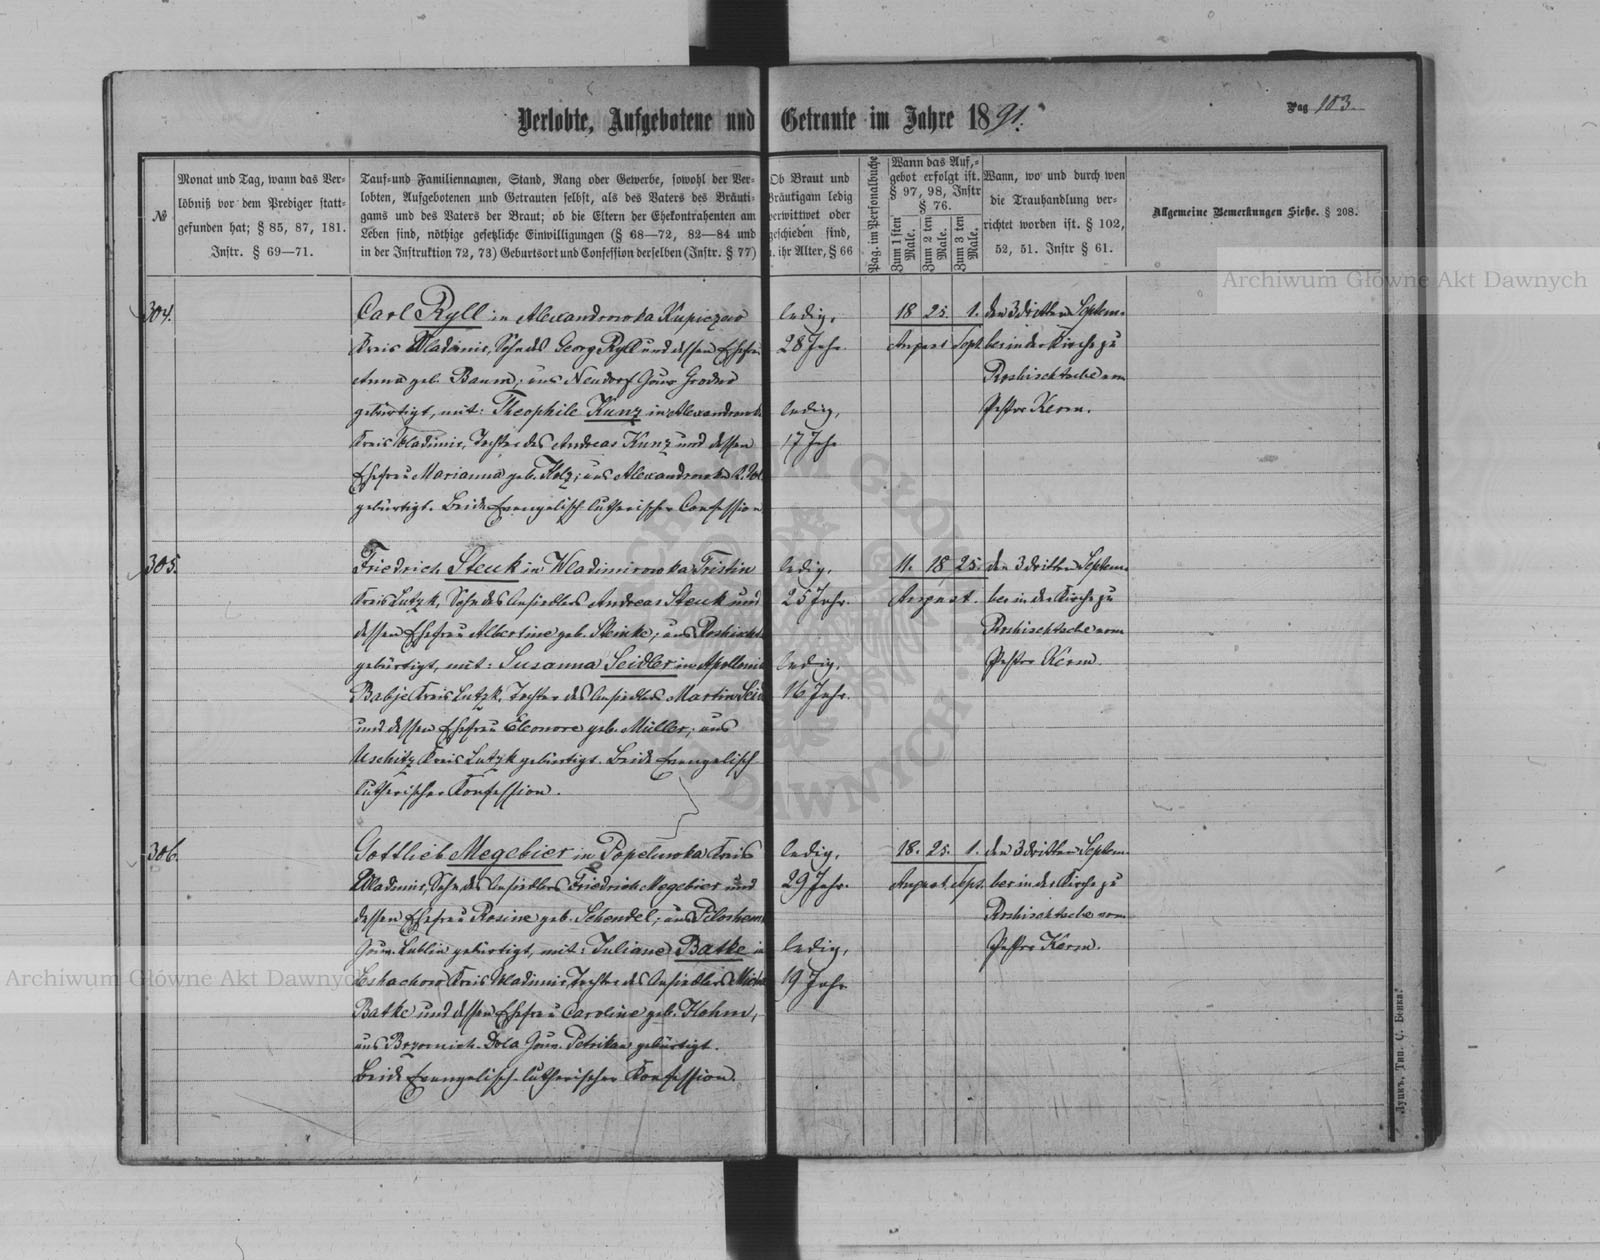 Verlobte, Aufgebotene und Getraute im Jahre 1891.
Pag 103.
№
Monat und Tag, wann das Ver-
löbniß vor dem Prediger statt-
gefunden hat; § 85, 87, 181.
Instr. § 69—71.
Tauf- und Familiennamen, Stand, Rang oder Gewerbe, sowohl der Ver-
lobten, Aufgebotenen und Getrauten selbst, als des Vaters des Bräuti-
gams und des Vaters der Braut; ob die Eltern der Ehekontrahenten am
Leben sind, nöthige gesetzliche Einwilligungen (§ 68—72, 82—84 und
in der Instruktion 72, 73) Geburtsort und Confession derselben (Instr. § 77)
Ob Braut und
Bräutigam ledig
verwittwet oder
geschieden sind,
u. ihr Alter, § 66
Pag. im Personalbuche
Wann das Auf-
gebot erfolgt ist.
§ 97, 98, Instr
§ 76.
Zum 1sten Male.
Zum 2 ten Male.
Zum 3 ten Male.
Wann, wo und durch wen
die Trauhandlung ver-
richtet worden ist. § 102,
52, 51. Instr § 61.
Allgemeine Bemerkungen Siehe. § 208.
304.
Carl Ryll in Alexandrowka Kupiczow
Kreis Wladimir, Sohn des Georg Ryll und dessen Ehefr
Anna geb. Baum; aus Neudorf Gouv Grodno
gebürtigt, mit: Theophile Kunz in Alexandrowk
Kreis Wladimir, Tochter des Andreas Kunz und dessen
Ehefrau Marianna geb. Holz; aus Alexandrowka
gebürtigt. Beide Evangelisch-lutherischer Confession
ledig,
28 Jahr.
ledig,
17 Jahr
18 25. 1.
August Sept.
den 3 dritten Septem-
ber in der Kirche zu
Roshischtsche vom
Pastor Kerm.
305.
Friedrich Steuk in Wladimirowka Tristin
Kreis Lutzk, Sohn des Ansiedlers Andreas Steuk und
dessen Ehefrau Albertine geb. Steinke; aus Roshischt
gebürtigt, mit: Susanna Seidler in Apollonia
Babje Kreis Lutzk, Tochter des Ansiedlers Martin Seid
und dessen Ehefrau Eleonore geb. Müller; aus
Uschitz Kreis Lutzk gebürtigt. Beide Evangelisch-
lutherischer Konfession.
ledig,
25 Jahr.
ledig,
16 Jahr.
11. 18 25.
August.
den 3 dritten Septem-
ber in der Kirche zu
Roshischtsche vom
Pastor Kerm.
306.
Gottlieb Megebier in Popeluwka Kreis
Wladimir, Sohn des Ansiedlers Friedrich Megebier und
dessen Ehefrau Rosine geb. Schendel; aus
Gouv. Lublin gebürtigt, mit: Juliane Batke in
Kreis Wladimir, Tochter des Ansiedlers
Batke und dessen Ehefrau Caroline geb. Hohm,
aus Dola Gouv. Petrikau gebürtigt.
Beide Evangelisch-lutherischer Konfession.
ledig,
29 Jahr.
ledig,
19 Jahr
18. 25. 1.
August. Sept.
den 3 dritten Septem-
ber in der Kirche zu
Roshischtsche vom
Pastor Kerm.
Луцкъ, Тип. С. Бенка.
Archiwum Główne Akt Dawnych
Archiwum Główne Akt Dawnych